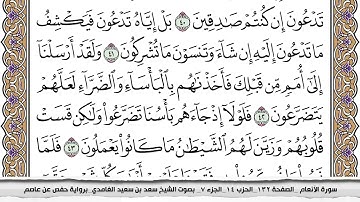 تَدْعُونَ إِن كُنتُمْ صَٰدِقِينَ ٤٠ بَلْ إِيَّاهُ تَدْعُونَ فَيَكْشِفُ
مَا تَدْعُونَ إِلَيْهِ إِن شَآءَ وَتَنسَوْنَ مَا تُشْرِكُونَ ٤١ وَلَقَدْ أَرْسَلْنَآ
إِلَىٰٓ أُمَمٍ مِّن قَبْلِكَ فَأَخَذْنَٰهُم بِٱلْبَأْسَآءِ وَٱلضَّرَّآءِ لَعَلَّهُمْ
يَتَضَرَّعُونَ ٤٢ فَلَوْلَآ إِذْ جَآءَهُم بَأْسُنَا تَضَرَّعُوا۟ وَلَٰكِن قَسَتْ
قُلُوبُهُمْ وَزَيَّنَ لَهُمُ ٱلشَّيْطَٰنُ مَا كَانُوا۟ يَعْمَلُونَ ٤٣ فَلَمَّا
سورة الأنعام _ الصفحة ١٣٢ _ الحزب ١٤ _ الجزء ٧ _ بصوت الشيخ سعد بن سعيد الغامدي _ برواية حفص عن عاصم